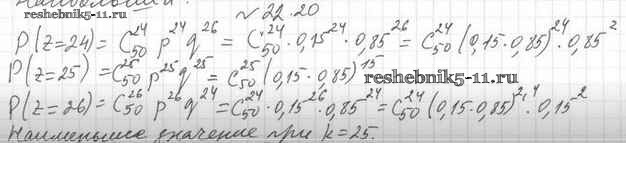 reshebnik5-11.ru
№ 22.20
P(z=24) = C₅₀²⁴ p²⁴ q²⁶ = C₅₀²⁴ · 0,15²⁴ · 0,85²⁶ = C₅₀²⁴ (0,15·0,85)²⁴ · 0,85²
P(z=25) = C₅₀²⁵ p²⁵ q²⁵ = C₅₀²⁵ (0,15·0,85)¹⁵ reshebnik5-11.ru
P(z=26) = C₅₀²⁶ p²⁶ q²⁴ = C₅₀²⁴ · 0,15²⁶ · 0,85²⁴ = C₅₀²⁴ (0,15·0,85)²⁴ · 0,15²
Наименьшее значение при k=25.